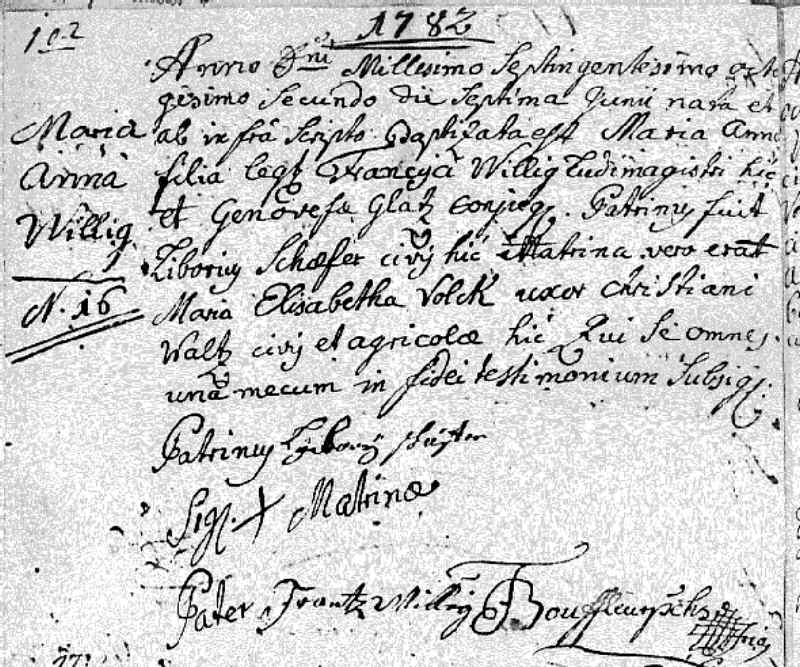 1782
Maria
Anna
Willig
N. 16
Anno Dni Millesimo Septingentesimo octo
gesimo secundo die septima Junii nata et
ab infrascripto Baptizata est Maria Anna
filia legĩ Francisci Willig Ludimagistri hic
et Genovefæ Glatz conjug. Patrinus fuit
Liborius Schæfer civis hic Matrina vero erat
Maria Elisabetha Volck uxor Christiani
Waltz civis et agricolæ hic Qui se omnes
una mecum in fidei testimonium subsig.
Patrinus
Sig. + Matrinæ
Pater Frantz Willig